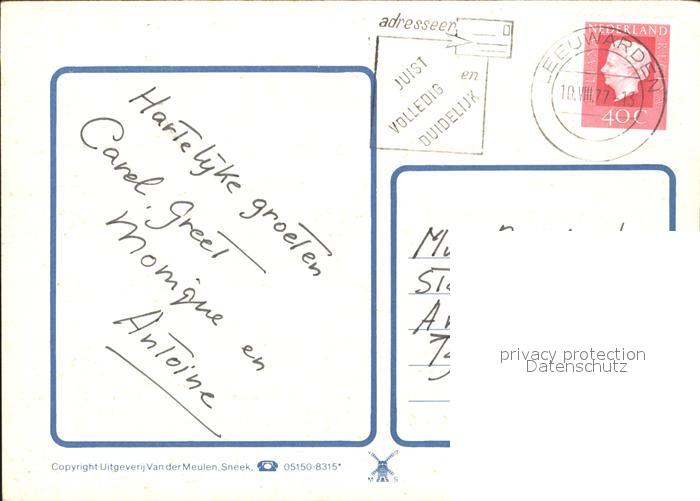 adresseer
JUIST
en
VOLLEDIG
DUIDELIJK
LEEUWARDEN
10.VIII.77-13
NEDERLAND
40 C
Hartelijke groeten
Carel, Greet
Monique en
Antoine
privacy protection
Datenschutz
Copyright Uitgeverij Van der Meulen, Sneek, ☎ 05150-8315*
M S